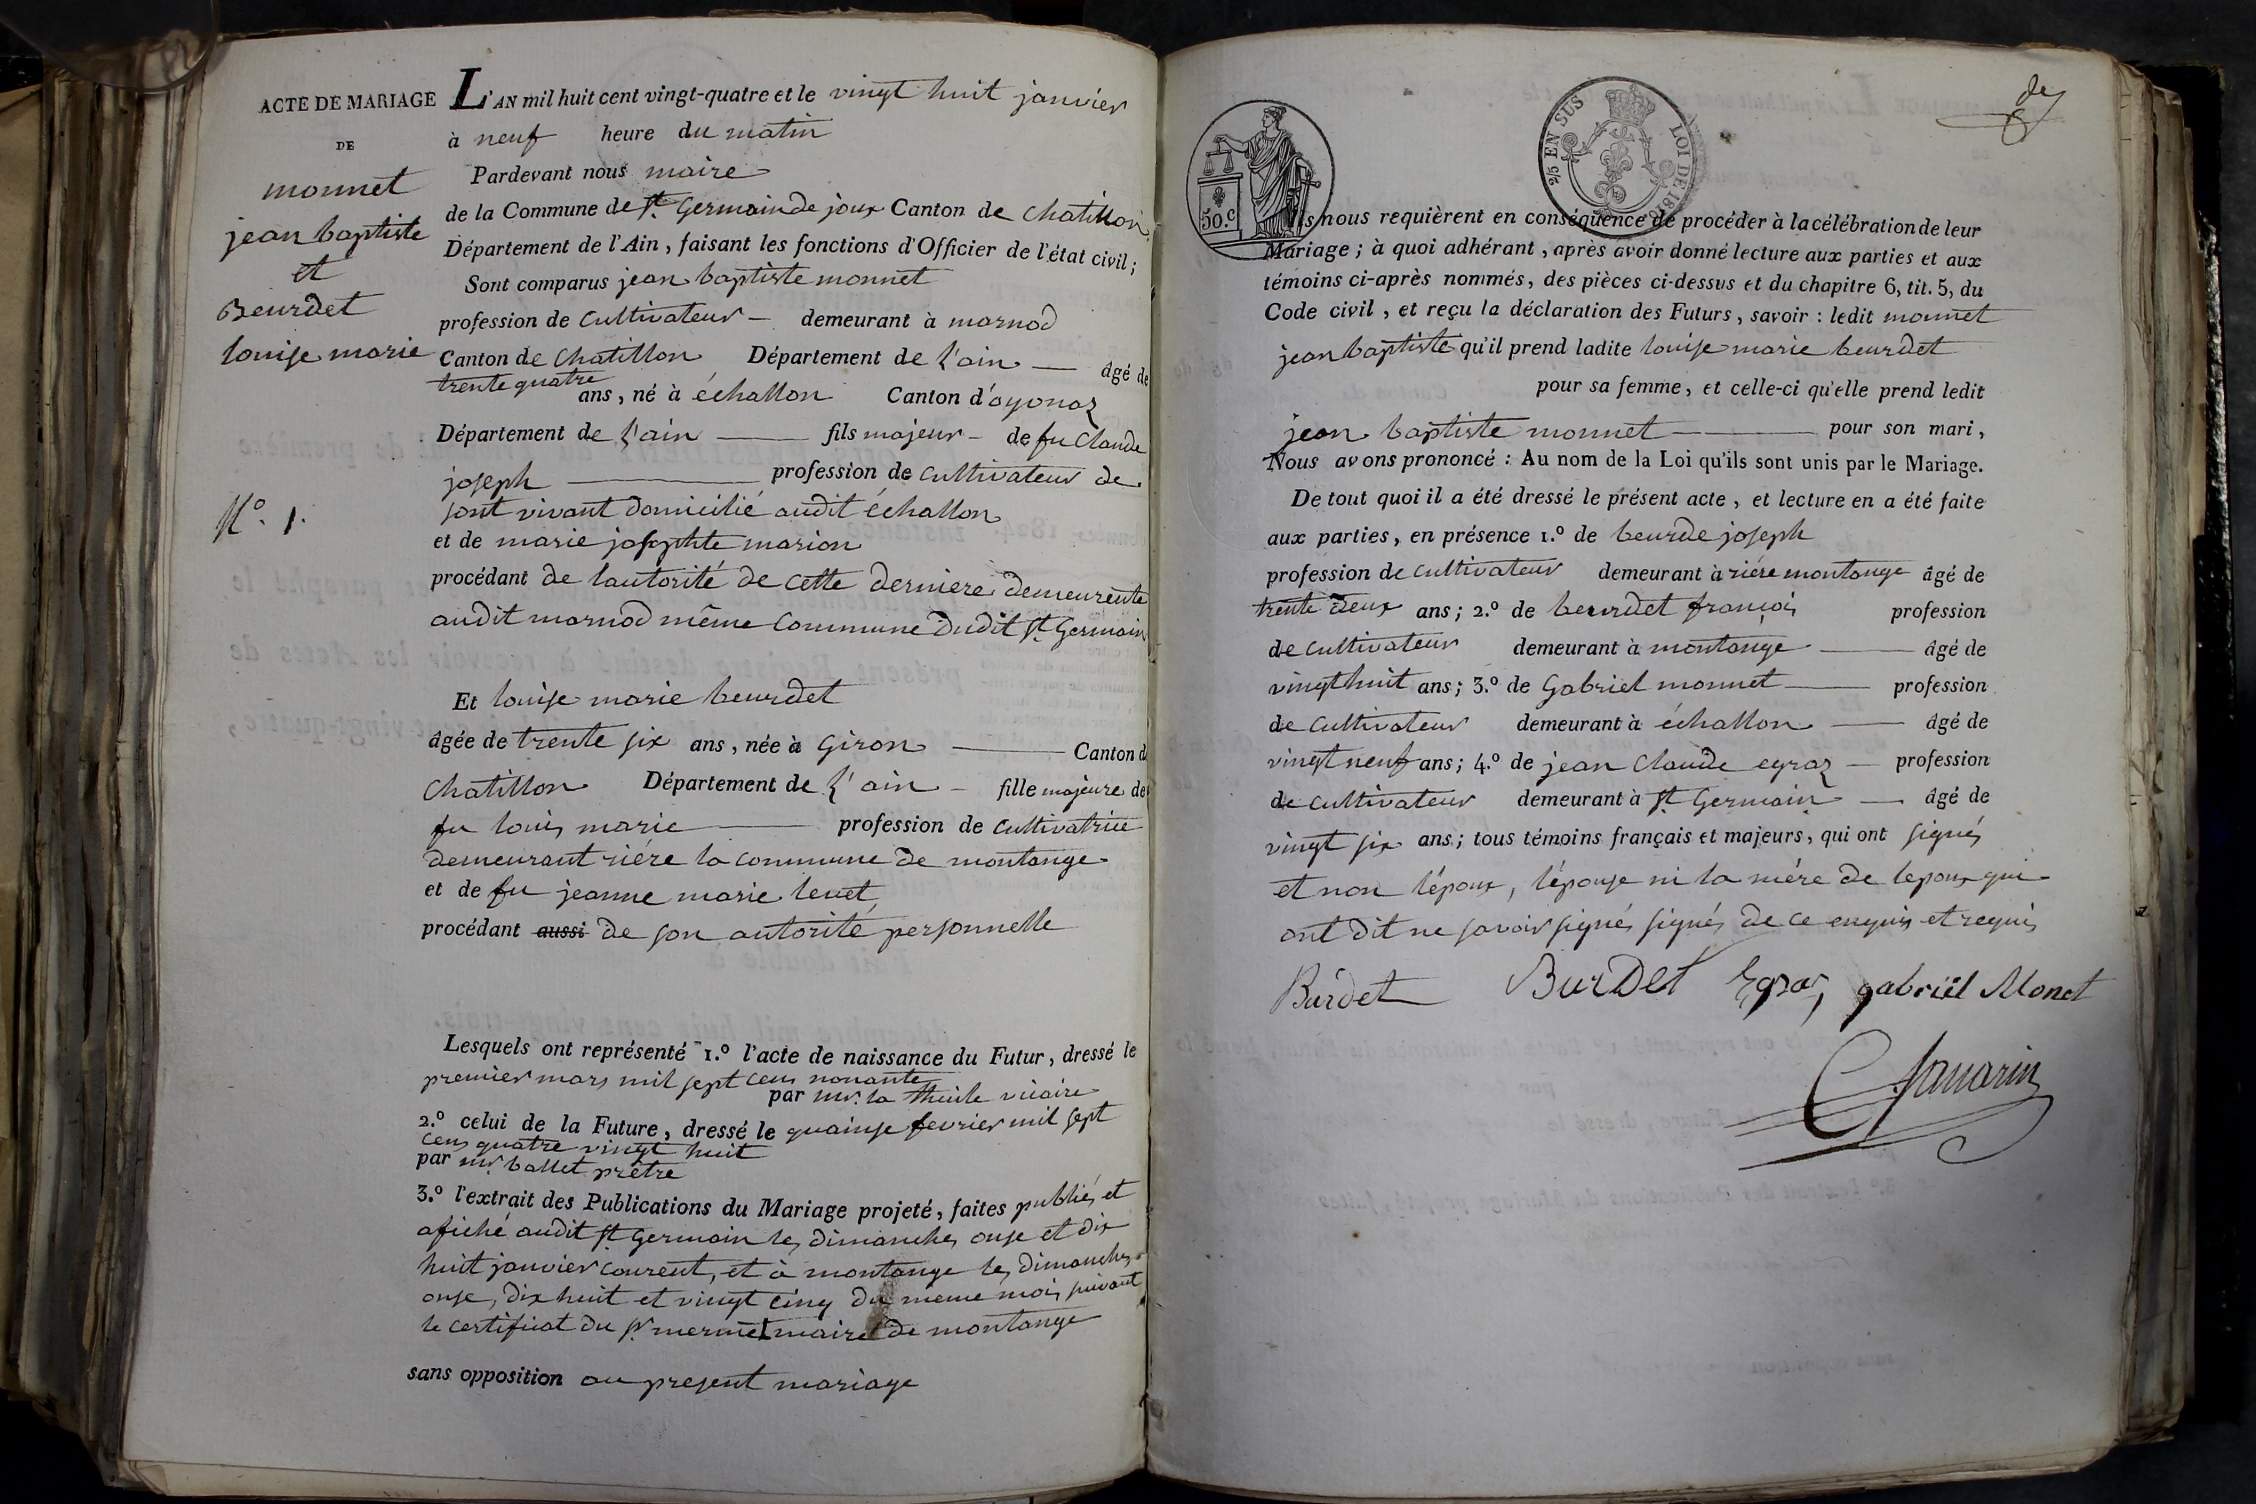 ACTE DE MARIAGE
DE
monnet
jean baptiste
et
Beurdet
louise marie
N.º 1.
L'AN mil huit cent vingt-quatre et le vingt huit janvier
à neuf heure du matin
Pardevant nous maire
de la Commune de St. Germain de joux Canton de Chatillon
Département de l'Ain, faisant les fonctions d'Officier de l'état civil;
Sont comparus jean baptiste monnet
profession de Cultivateur – demeurant à marnod
Canton de Chatillon Département de l'ain — âgé de
trente quatre
ans, né à échallon Canton d'oyonaz
Département de l'ain — fils majeur – de fu Claude
joseph — profession de Cultivateur de
sont vivant domicilié audit échallon
et de marie josephte marion
procédant de lautorité de cette derniere demeurente
audit marnod même Commune dudit St. Germain
Et louise marie beurdet
âgée de trente six ans, née à Giron — Canton de
Chatillon Département de l'ain – fille majeure de
fu louis marie — profession de Cultivatrice
demeurant riére la commune de montange
et de fu jeanne marie levet
procédant aussi de son autorité personnelle
Lesquels ont représenté 1.º l'acte de naissance du Futur, dressé le
premier mars mil sept cens nonante
par mr. la vicaire
2.º celui de la Future, dressé le quainse fevrier mil sept
cens quatre vingt huit
par mr. ballet prêtre
3.º l'extrait des Publications du Mariage projeté, faites publiés et
afiché audit St Germain les dimanches onse et dix
huit janvier courent, et à montange les dimanches
onse, dix huit et vingt cinq du meme mois suivant
le certificat du sr mermet maire de montange
sans opposition au present mariage
de
50.c
2/5 EN SUS
LOI DE 1816
Ils nous requièrent en conséquence de procéder à la célébration de leur
Mariage; à quoi adhérant, après avoir donné lecture aux parties et aux
témoins ci-après nommés, des pièces ci-dessus et du chapitre 6, tit. 5, du
Code civil, et reçu la déclaration des Futurs, savoir : ledit monnet
jean baptiste qu'il prend ladite louise marie beurdet
pour sa femme, et celle-ci qu'elle prend ledit
jean baptiste monnet — pour son mari,
Nous avons prononcé : Au nom de la Loi qu'ils sont unis par le Mariage.
De tout quoi il a été dressé le présent acte, et lecture en a été faite
aux parties, en présence 1.º de beurde joseph
profession de cultivateur demeurant à riére montange âgé de
trente deux ans; 2.º de beurdet françois profession
de cultivateur demeurant à montange — âgé de
vingt huit ans; 3.º de Gabriel monnet — profession
de cultivateur demeurant à échallon — âgé de
vingt neuf ans; 4.º de jean Claude egraz — profession
de cultivateur demeurant à St Germain — âgé de
vingt six ans; tous témoins français et majeurs, qui ont signés
et non lépoux, lépouse ni la mére de lepoux qui
ont dit ne savoir signés signés de ce enquis et requis
Burdet BurDet Egraz gabriël Monet